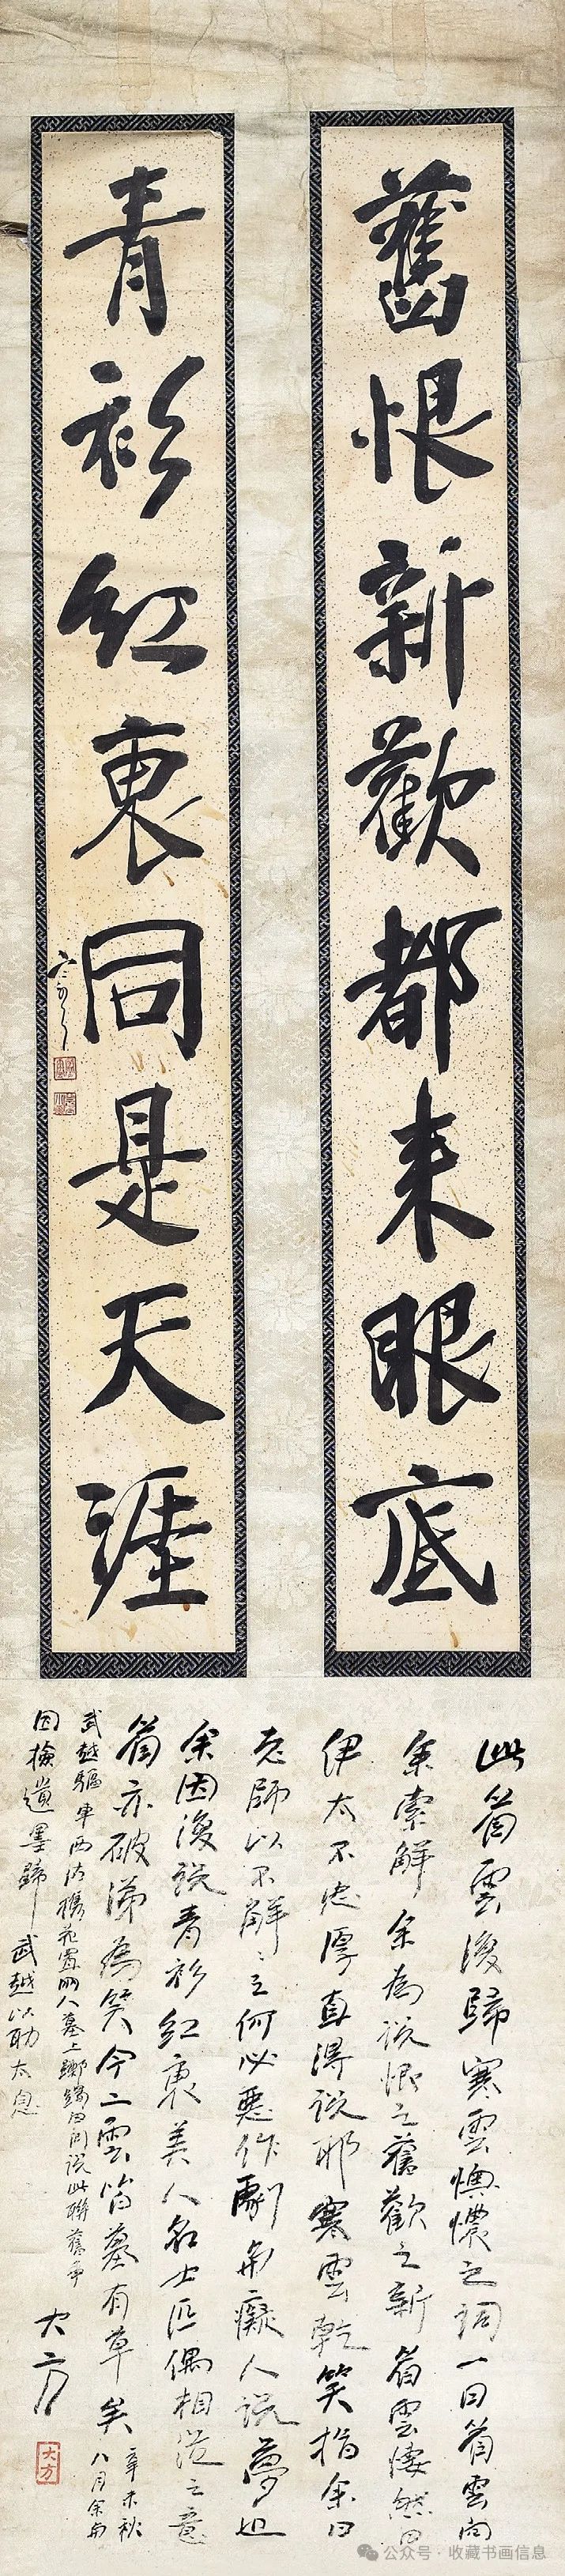 舊恨新歡都来眼底
青衫紅裏同是天涯
寒雲
此筩雲後歸寒雲懊憹之詞一日筩雲向
余索解余為說恨之舊歡之新筩雲悽然曰
伊太不忠厚真得說耶寒雲乾笑指余曰
老師以不解之何必惡作劇與癡人說夢也
余因復說青衫紅裏美人名士匹偶相從之意
筩亦破涕為笑今二雲皆墓有草矣辛未秋八月余與
武越驅車西沽携花置兩人墓上歸途因說此聯舊事
因檢遺墨歸武越以助太息
大方
大方
公众号·收藏书画信息